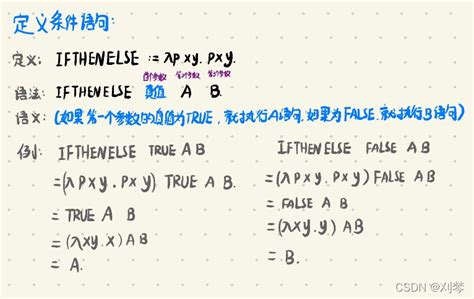 定义条件语句:
定义: IFTHENELSE := λpxy. pxy.
首个参数 第2个参数 第3个参数
语法: IFTHENELSE 真值 A B.
语义: (如果第一个参数的真值为TRUE, 就执行A语句, 如果为FALSE. 就执行B语句)
例: IFTHENELSE TRUE A B IFTHENELSE FALSE A B
=(λpxy.pxy) TRUE A B. =(λpxy.pxy) FALSE A B
= TRUE A B = FALSE A B
=(λxy.x) A B =(λxy.y) A B
= A. = B.
CSDN @刈琴